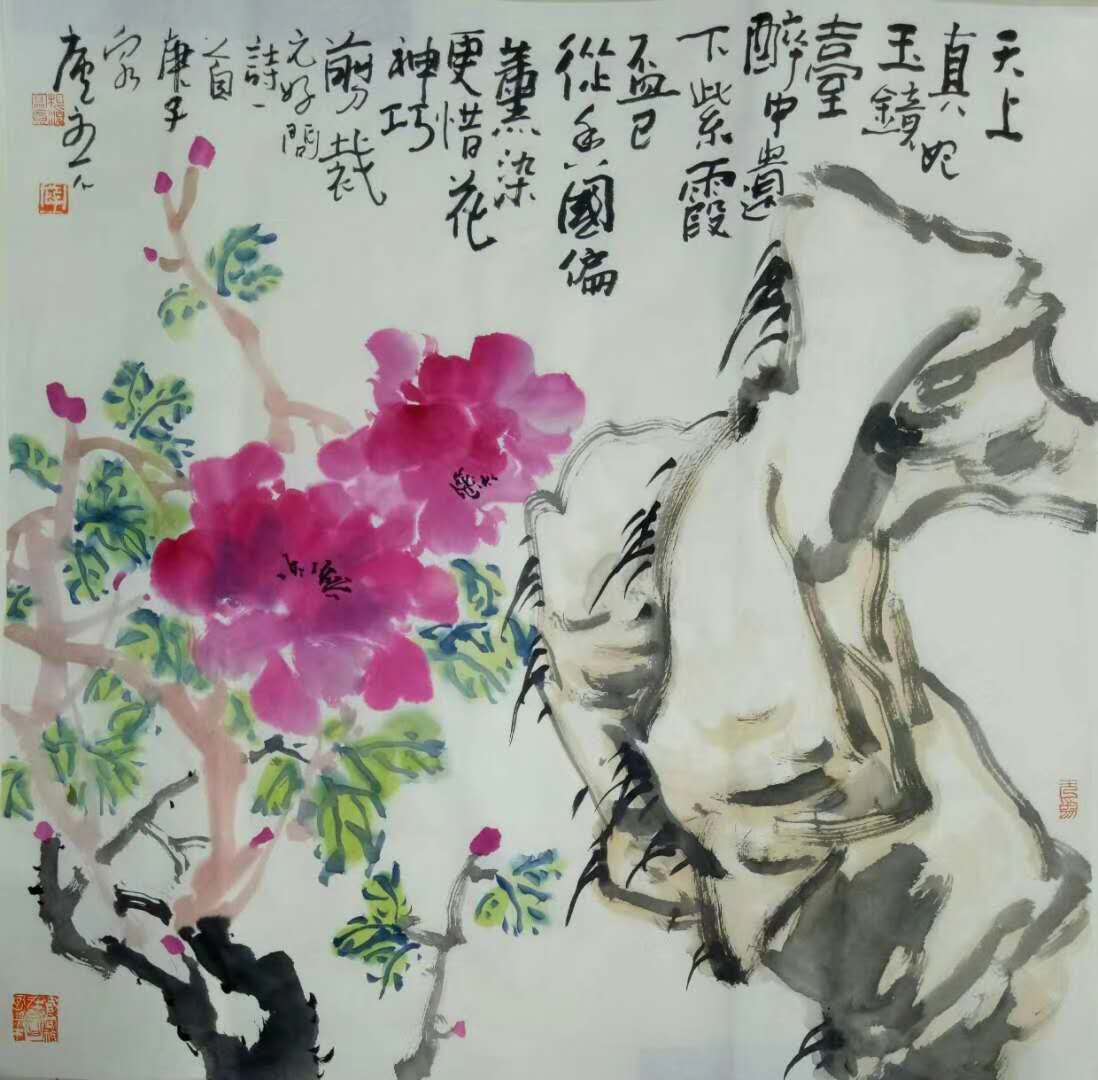 天上
真妃
玉鏡
臺
醉中遺
下紫霞
盃已
從香國偏
薰染
更惜花
神巧
剪裁
元好問
詩一
首
庚子